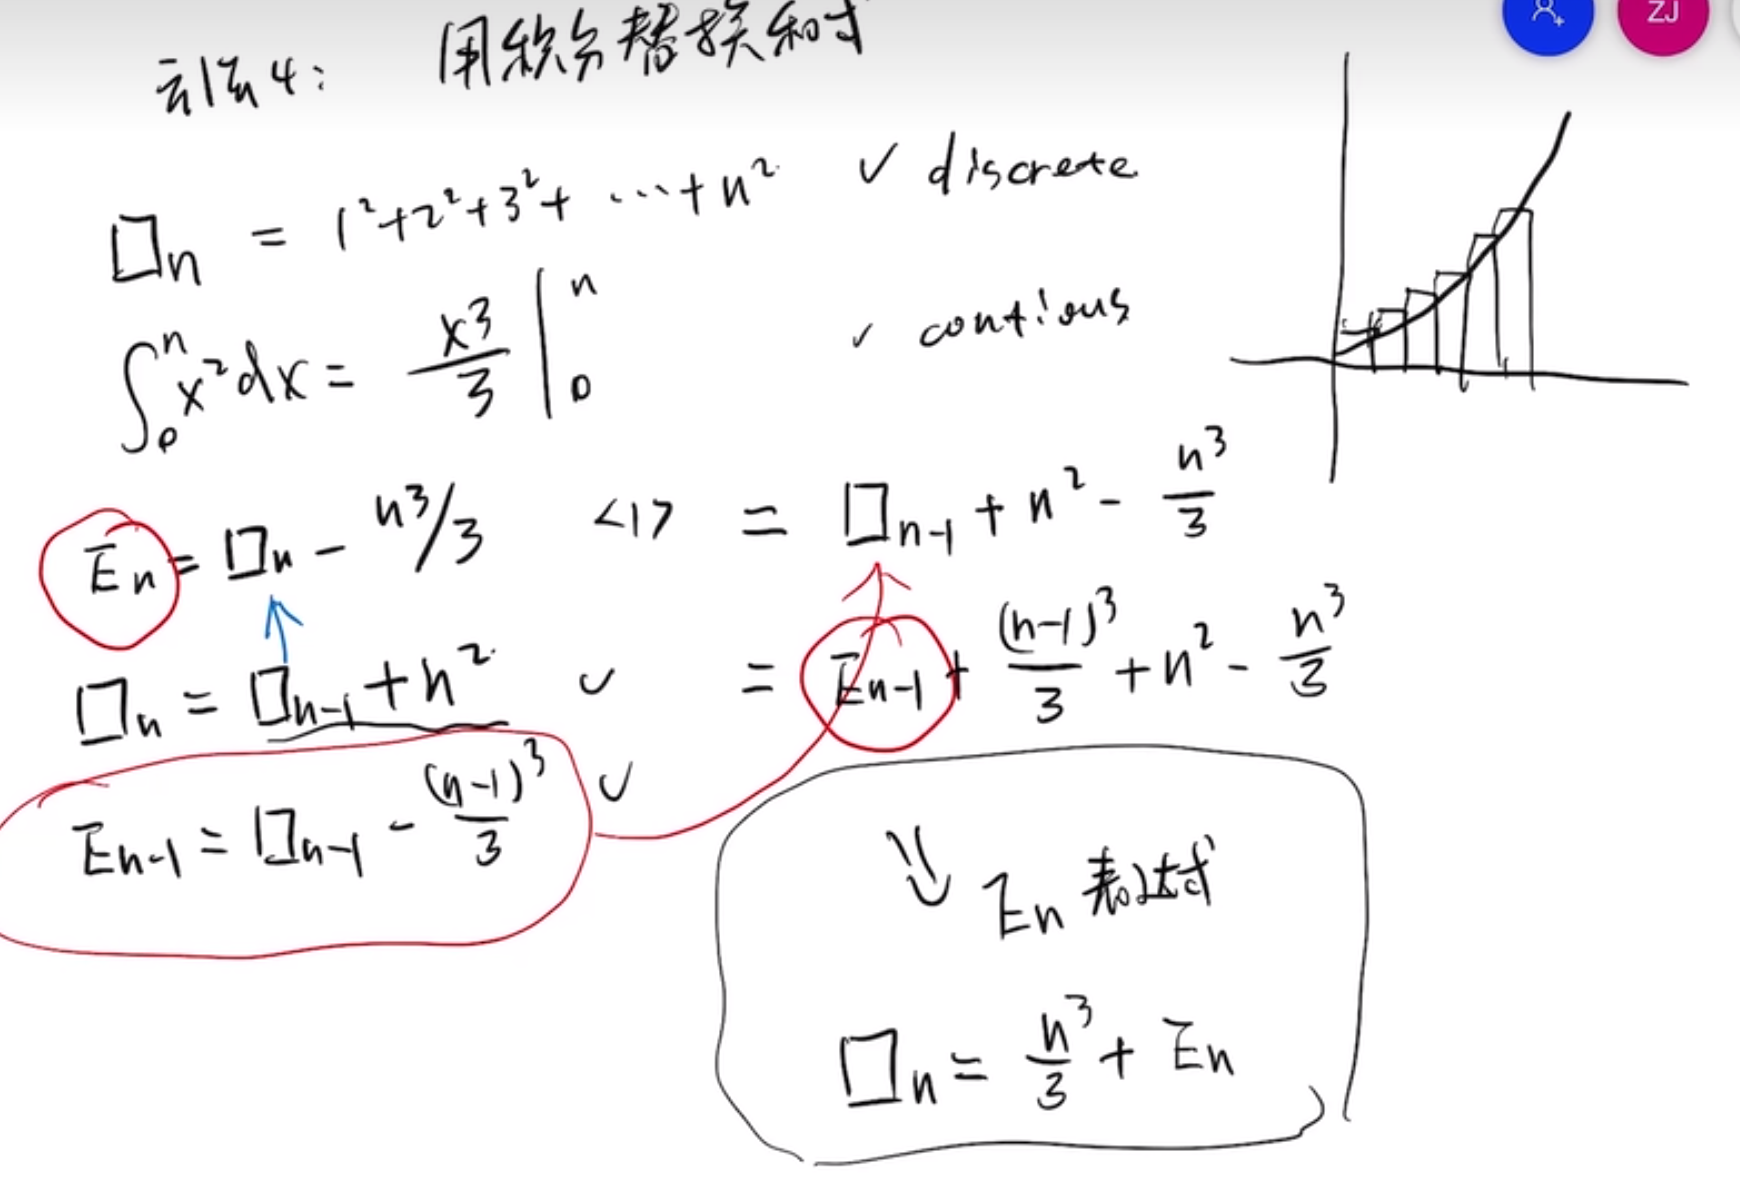 方法4: 用积分替换和式
ZJ
□n = 1²+2²+3²+ ⋯+n² ✓ discrete
∫₀ⁿ x²dx = x³/3 |₀ⁿ ✓ contious
En = □n - n³/3 <1> = □n-1 + n² - n³/3
□n = □n-1 + n² ✓ = En-1 + (n-1)³/3 + n² - n³/3
En-1 = □n-1 - (n-1)³/3 ✓
⇓ En 表达式
□n = n³/3 + En